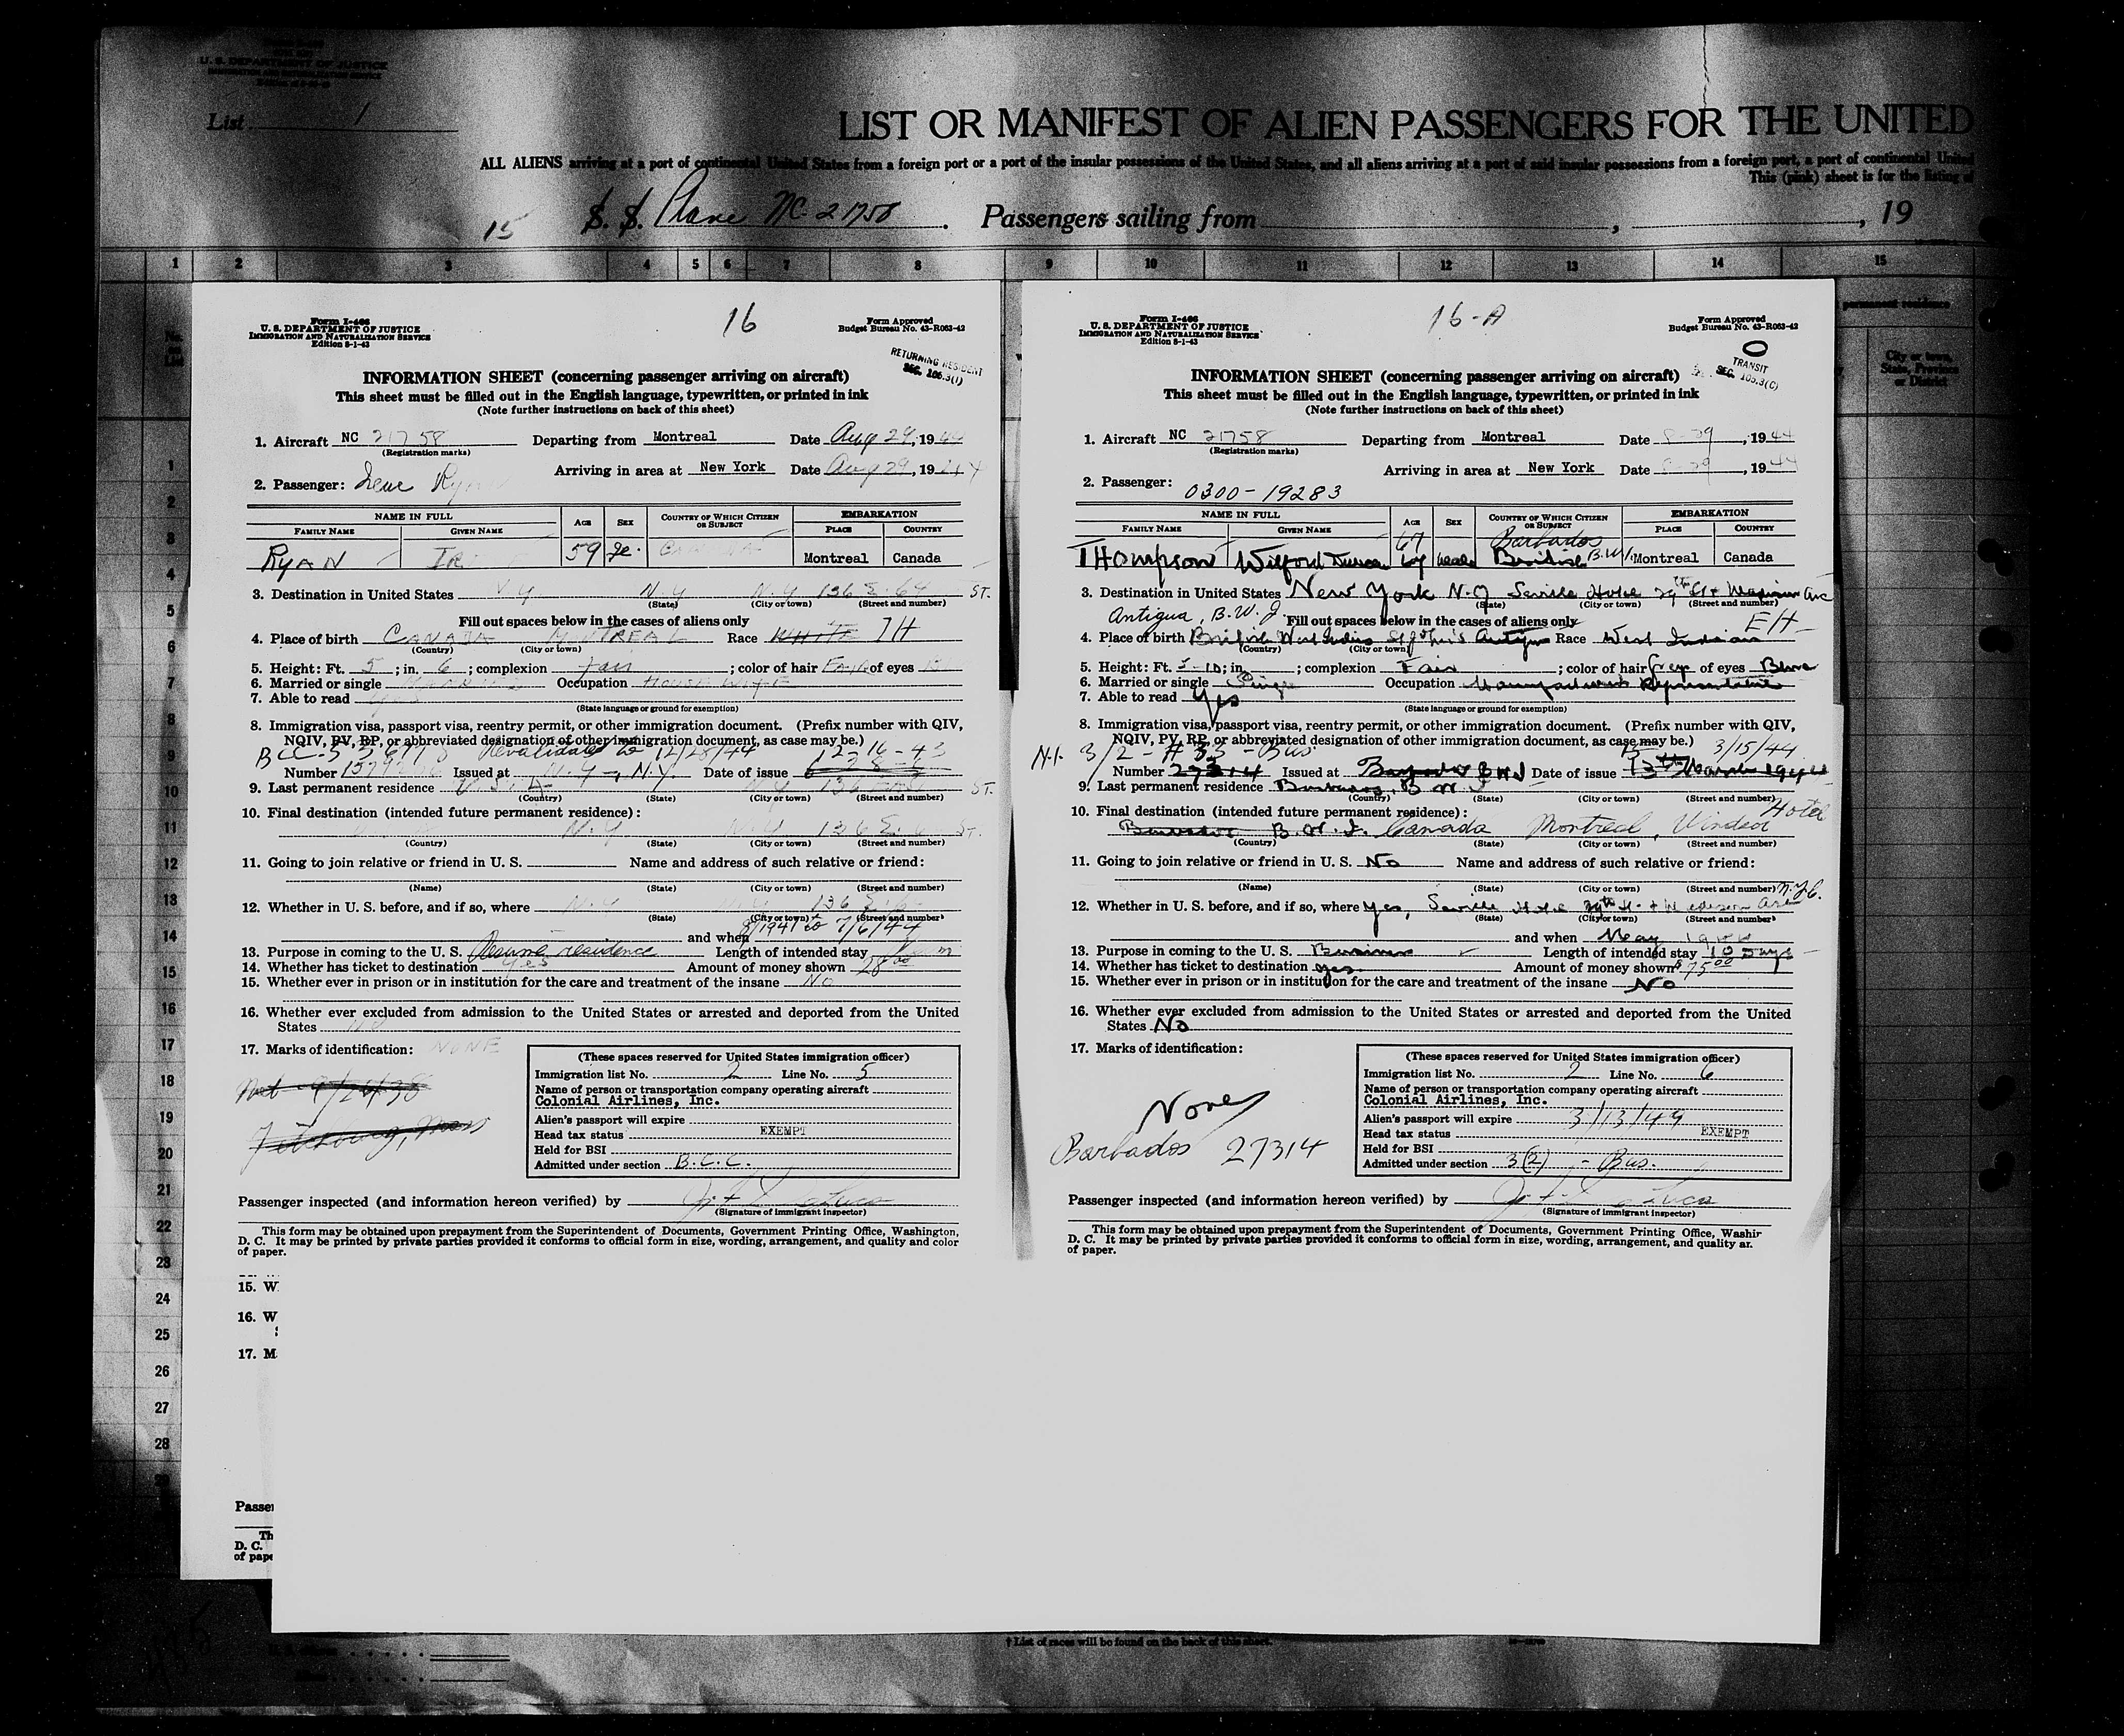 U. S. DEPARTMENT OF JUSTICE
IMMIGRATION AND NATURALIZATION SERVICE
List 1
LIST OR MANIFEST OF ALIEN PASSENGERS FOR THE UNITED
ALL ALIENS arriving at a port of continental United States from a foreign port or a port of the insular possessions of the United States, and all aliens arriving at a port of said insular possessions from a foreign port, a port of continental United
This (pink) sheet is for the listing of
15 S. S. Plane NC-21758. Passengers sailing from , , 19
1 2 3 4 5 6 7 8 9 10 11 12 13 14 15
permanent residence
City or town, State, Province or District
1
2
3
4
5
6
7
8
9
10
11
12
13
14
15
16
17
18
19
20
21
22
23
24
25
26
27
28
Form I-466
U. S. DEPARTMENT OF JUSTICE
IMMIGRATION AND NATURALIZATION SERVICE
Edition 8-1-43
16
Form Approved
Budget Bureau No. 43-R063-42
RETURNING RESIDENT
SEC. 106.3(1)
INFORMATION SHEET (concerning passenger arriving on aircraft)
This sheet must be filled out in the English language, typewritten, or printed in ink
(Note further instructions on back of this sheet)
1. Aircraft NC 21758 Departing from Montreal Date Aug 29, 1944
(Registration marks)
Arriving in area at New York Date Aug 29, 1944
2. Passenger: Irene Ryan
NAME IN FULL AGE SEX COUNTRY OF WHICH CITIZEN OR SUBJECT EMBARKATION
FAMILY NAME GIVEN NAME PLACE COUNTRY
RYAN 59 fe. CANADA Montreal Canada
3. Destination in United States N.Y. N.Y. 136 E. 64 ST.
(State) (City or town) (Street and number)
Fill out spaces below in the cases of aliens only
4. Place of birth CANADA MONTREAL Race WHITE IH
(Country) (City or town)
5. Height: Ft. 5; in. 6; complexion fair; color of hair of eyes
6. Married or single Occupation HOUSEWIFE
7. Able to read yes
(State language or ground for exemption)
8. Immigration visa, passport visa, reentry permit, or other immigration document. (Prefix number with QIV,
NQIV, PV, RP, or abbreviated designation of other immigration document, as case may be.)
Revalidated to 12/28/44 12-16-43
Number Issued at N.Y., N.Y. Date of issue
9. Last permanent residence U.S.A. N.Y. 136 EAST ST.
(Country) (State) (City or town) (Street and number)
10. Final destination (intended future permanent residence):
N.Y. N.Y. 136 E. ST.
(Country) (State) (City or town) (Street and number)
11. Going to join relative or friend in U. S. Name and address of such relative or friend:
(Name) (State) (City or town) (Street and number)
12. Whether in U. S. before, and if so, where N.Y. N.Y. 136 E.
(State) (City or town) (Street and number)
and when 8/1941 to 7/6/44
13. Purpose in coming to the U. S. Resume residence Length of intended stay
14. Whether has ticket to destination yes Amount of money shown 28.00
15. Whether ever in prison or in institution for the care and treatment of the insane No
16. Whether ever excluded from admission to the United States or arrested and deported from the United
States No
17. Marks of identification: NONE
Fitchburg, Mass
(These spaces reserved for United States immigration officer)
Immigration list No. 2 Line No. 5
Name of person or transportation company operating aircraft
Colonial Airlines, Inc.
Alien's passport will expire
Head tax status EXEMPT
Held for BSI
Admitted under section B.C.C.
Passenger inspected (and information hereon verified) by
(Signature of immigrant inspector)
This form may be obtained upon prepayment from the Superintendent of Documents, Government Printing Office, Washington,
D. C. It may be printed by private parties provided it conforms to official form in size, wording, arrangement, and quality and color
of paper.
15. W
16. W
17. M
Passen
Th
D. C.
of pape
Form I-466
U. S. DEPARTMENT OF JUSTICE
IMMIGRATION AND NATURALIZATION SERVICE
Edition 8-1-43
16-A
Form Approved
Budget Bureau No. 43-R063-42
TRANSIT
SEC. 105.3(C)
INFORMATION SHEET (concerning passenger arriving on aircraft)
This sheet must be filled out in the English language, typewritten, or printed in ink
(Note further instructions on back of this sheet)
1. Aircraft NC 21758 Departing from Montreal Date 8-29, 1944
(Registration marks)
Arriving in area at New York Date 8-29, 1944
2. Passenger: 0300-19283
NAME IN FULL AGE SEX COUNTRY OF WHICH CITIZEN OR SUBJECT EMBARKATION
FAMILY NAME GIVEN NAME PLACE COUNTRY
67 Barbados
THOMPSON Wilford Duncan 67 male British B.W.I. Montreal Canada
3. Destination in United States New York N.Y. Seville Hotel 29th St + Madison Ave
(State) (City or town) (Street and number)
Antigua, B.W.I. Fill out spaces below in the cases of aliens only EH
4. Place of birth British West Indies St John's Antigua Race West Indian
(Country) (City or town)
5. Height: Ft. 5-10; in ; complexion Fair; color of hair Grey of eyes Blue
6. Married or single Single Occupation Manufacturers Representative
7. Able to read Yes
(State language or ground for exemption)
8. Immigration visa, passport visa, reentry permit, or other immigration document. (Prefix number with QIV,
NQIV, PV, RP, or abbreviated designation of other immigration document, as case may be.)
N.I. 3/2 - # 33 - Bus 3/15/44
Number 27314 Issued at Barbados BWI Date of issue 13th March 1944
9. Last permanent residence Barbados, B.W.I.
(Country) (State) (City or town) (Street and number)
10. Final destination (intended future permanent residence):
Barbados B.W.I. Canada Montreal, Windsor Hotel
(Country) (State) (City or town) (Street and number)
11. Going to join relative or friend in U. S. No Name and address of such relative or friend:
(Name) (State) (City or town) (Street and number)
12. Whether in U. S. before, and if so, where Yes, Seville Hotel 29th St. + Madison Ave N.Y.C.
(State) (City or town) (Street and number)
and when May 1944
13. Purpose in coming to the U. S. Business Length of intended stay 10 Days
14. Whether has ticket to destination yes Amount of money shown $75.00
15. Whether ever in prison or in institution for the care and treatment of the insane No
16. Whether ever excluded from admission to the United States or arrested and deported from the United
States No
17. Marks of identification:
None
Barbados 27314
(These spaces reserved for United States immigration officer)
Immigration list No. 2 Line No. 6
Name of person or transportation company operating aircraft
Colonial Airlines, Inc.
Alien's passport will expire 3/13/49
Head tax status EXEMPT
Held for BSI
Admitted under section 3(2) - Bus.
Passenger inspected (and information hereon verified) by
(Signature of immigrant inspector)
This form may be obtained upon prepayment from the Superintendent of Documents, Government Printing Office, Washin
D. C. It may be printed by private parties provided it conforms to official form in size, wording, arrangement, and quality an
of paper.
† List of races will be found on the back of this sheet.